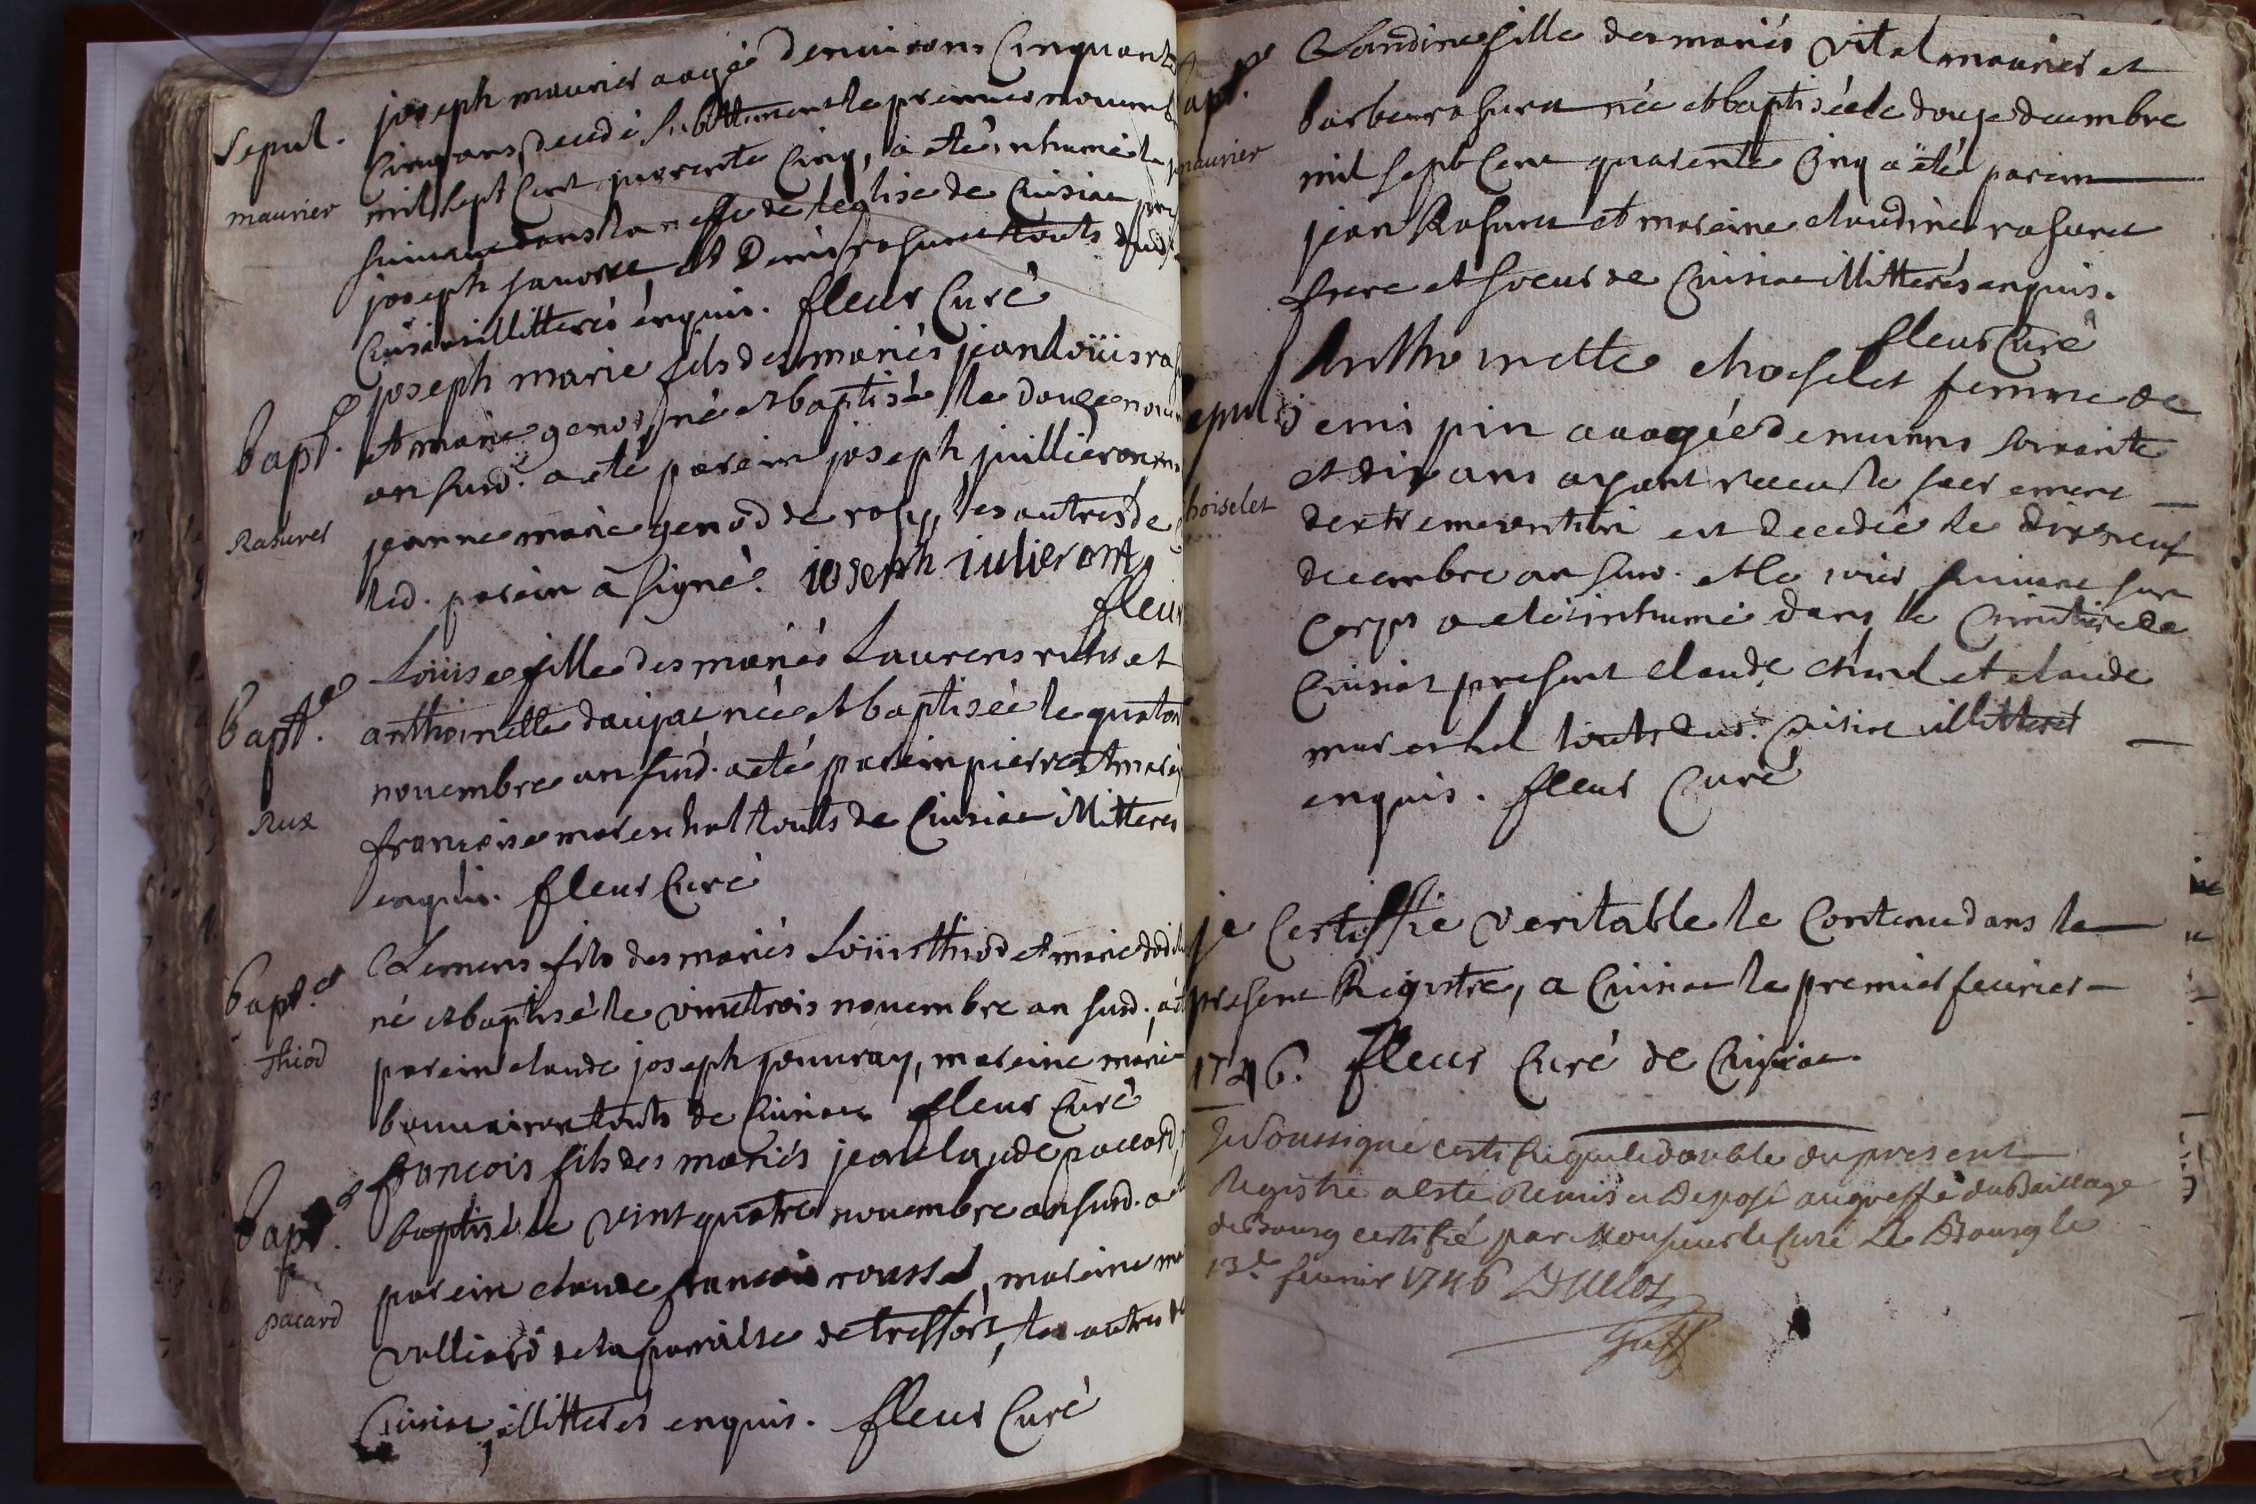 Sepul.
maurier
joseph maurier aagé denuirons Cinquante
Cinq ans, decedé subittement le premier nouemb
mil sept Cent quarente Cinq, a eté inhumé le
suiuant dans la nef de leglise de Cuisiat
joseph et Denis rasurel touts dud.
Cuisiat illitterés enquis. fleur Curé
bapt.
Rasurel
joseph marie fils des mariés jean loüis ras
et marie genod, né et baptisé le douze nouem
an susd. a eté parein joseph juillieron
jeanne marie genod de rosy, les autres de
led. parein a signé. joseph iulieront
fleur
bapt.
Rux
Loüise fille des mariés Laurens ruhs et
anthoinette daujat née et baptisée le quator
nouembre an susd. a eté parein pierre et marei
francoise mareschal touts de Cuisiat illitteres
enquis. fleur Curé
bapt.
Thiod
Clemens fils des mariés Loüis thiod et marie
né et baptisé le vint trois nouembre an susd., a et
parein claude joseph jouuray, mareine marie
touts de Cuisiat fleur Curé
bapt.
pacard
francois fils des mariés jean claude paccard,
baptisé le vint quatre nouembre an susd. a et
parein claude francois roussel, mareine ma
vulliard de la parroisse de treffort, les autres de
Cuisiat, illitterés enquis. fleur Curé
bapt.
maurier
Claudine fille des mariés vital maurier et
barbe rasurel née et baptisée le douze decembre
mil sept Cent quarente Cinq a eté parein
jean Rasurel et mareine claudine rasurel
frere et soeur de Cuisiat illitterés enquis.
fleur Curé
Sepul
choiselet
Anthoinette choiselet femme de
denis pin aagée denuirons soixante
et dix ans ayant receu le sacrement
dextremeonction est decedée le dixneuf
decembre an susd. et le iour suiuant son
Corps a eté inhumé dans le Cimetiere de
Cuisiat present claude et claude
mareschal touts dud. Cuisiat illitterés
enquis. fleur Curé
je Certiffie veritable le Contenu dans le
present Registre, a Cuisiat le premier feurier
1746. fleur Curé de Cuisiat.
Je Soussigné certifie que le double du present
Registre a esté Remis et Deposé au greffe du Baillage
de Bourg certifié par Monsieur le Curé De Bourg le
13e feurier 1746
Greff